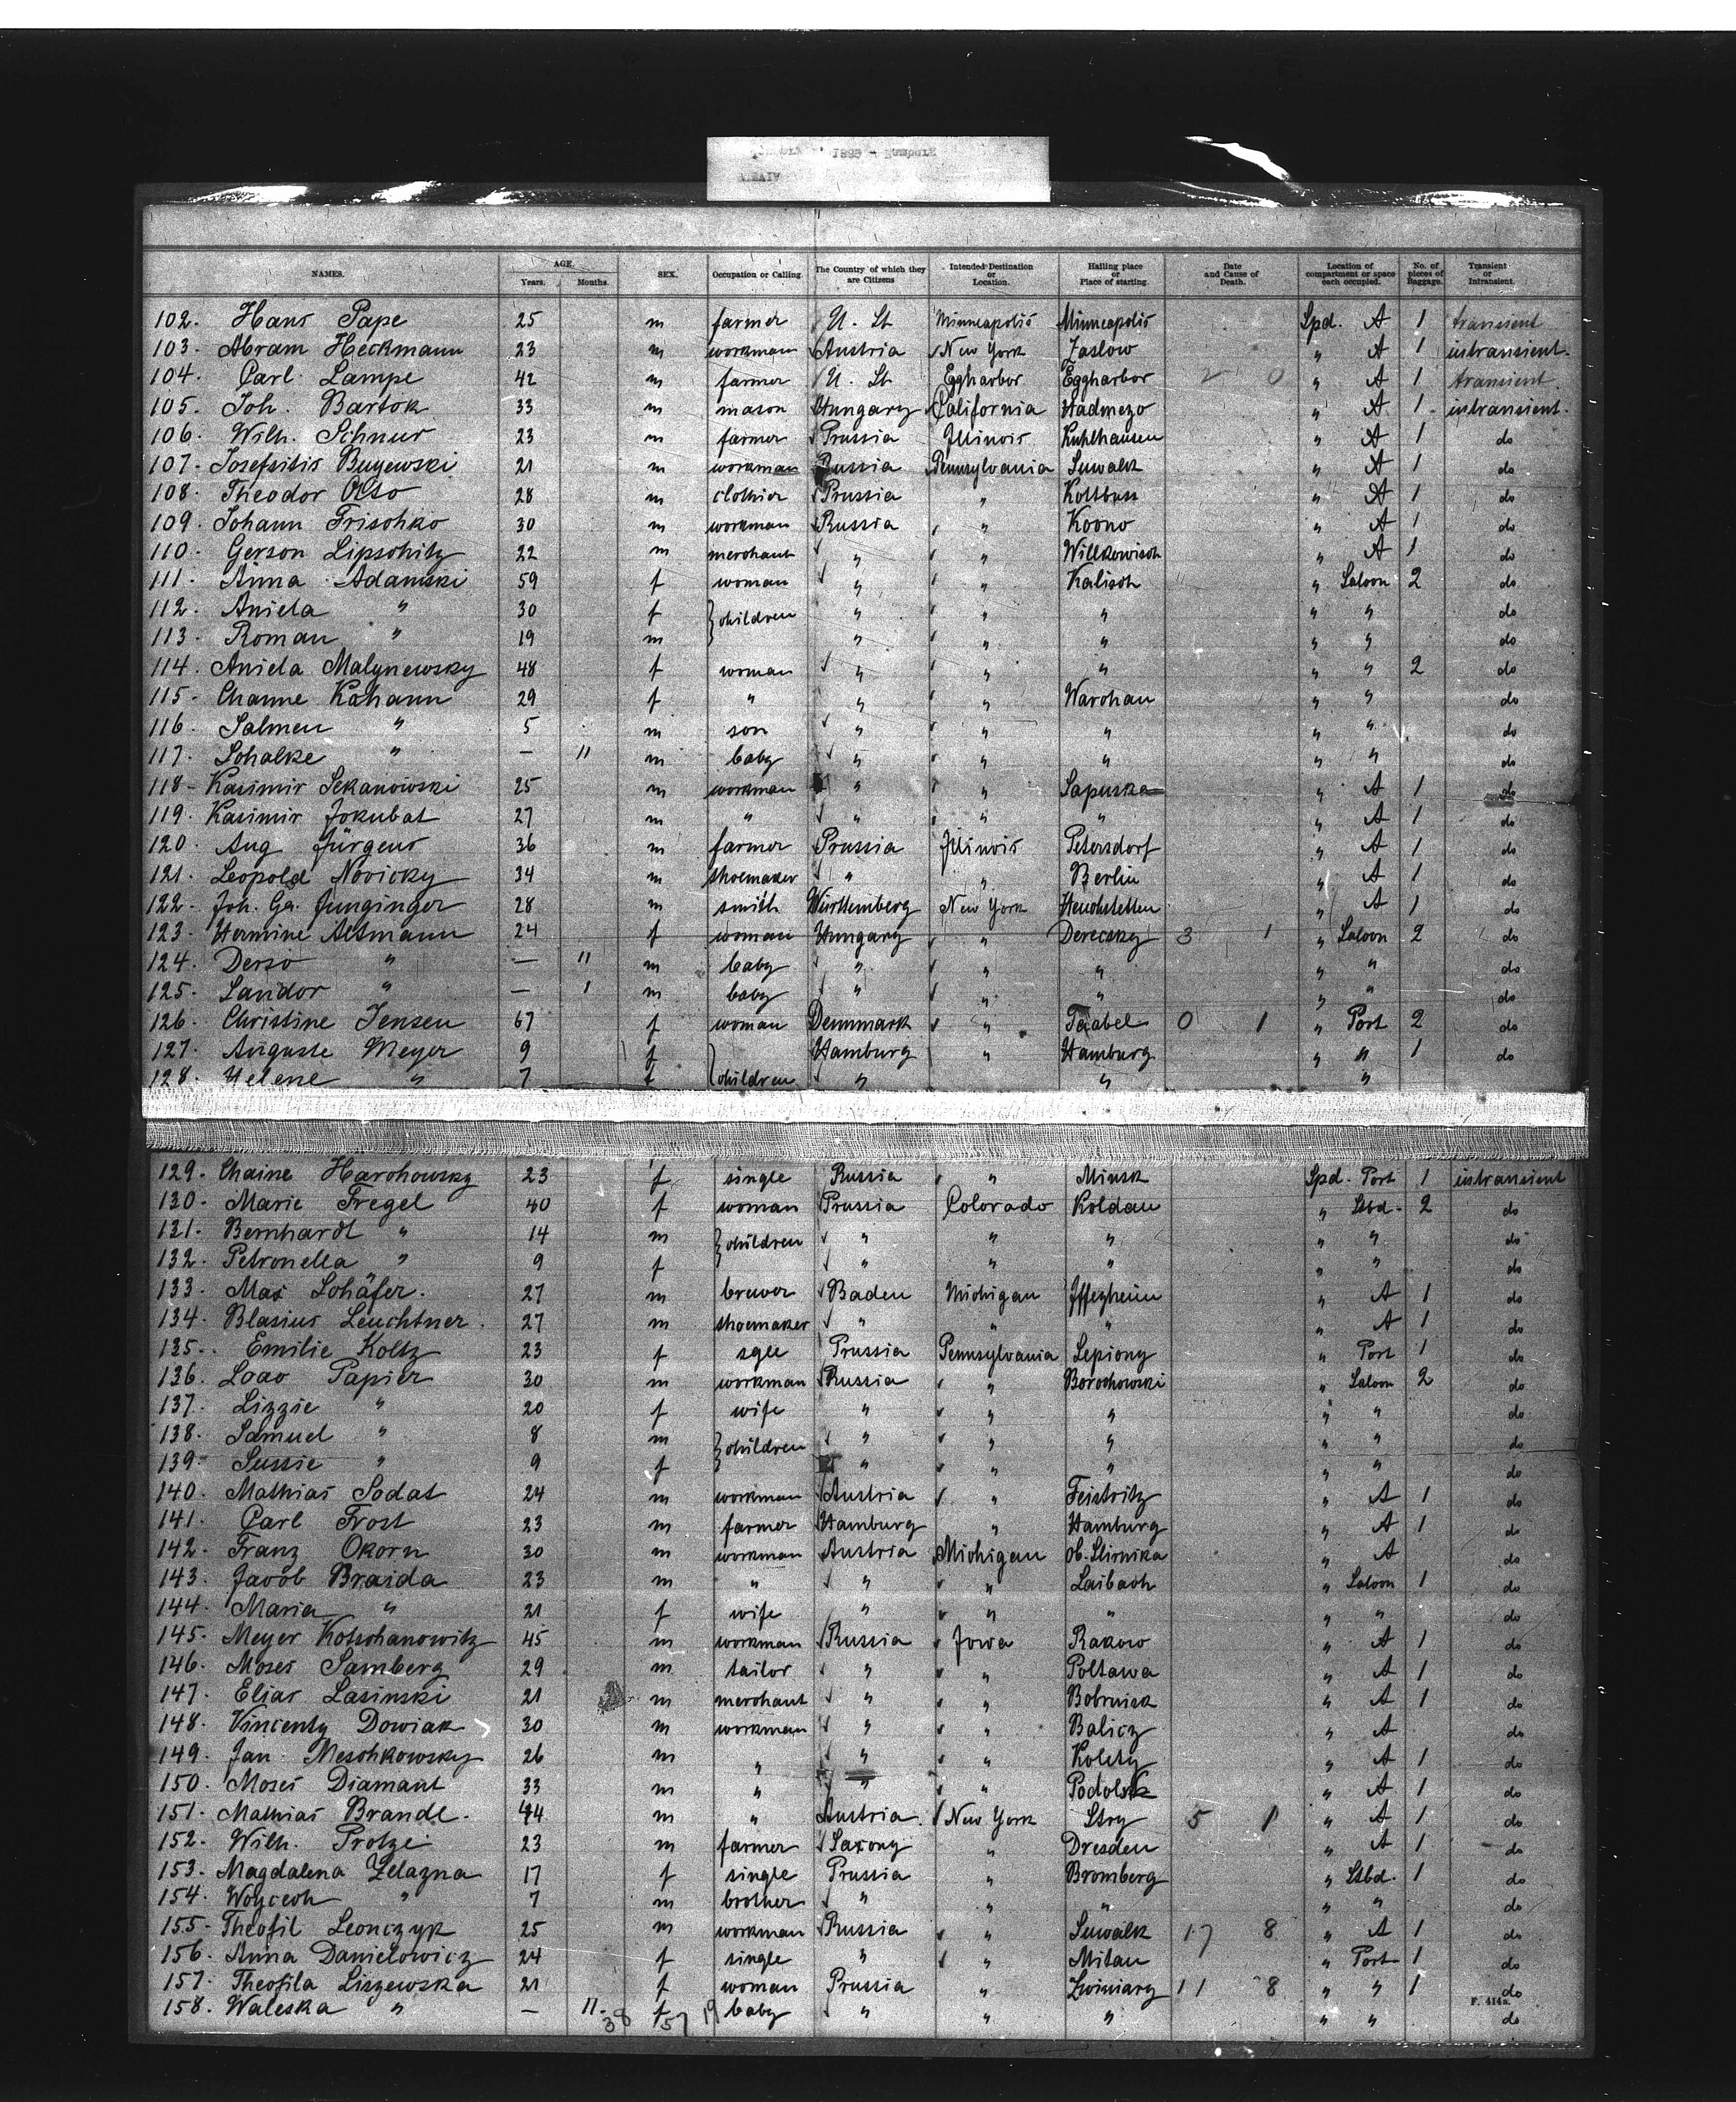 1895
NAMES. AGE. Years. Months. SEX. Occupation or Calling. The Country of which they are Citizens Intended Destination or Location. Hailing place or Place of starting. Date and Cause of Death. Location of compartment or space each occupied. No. of pieces of Baggage. Transient or Intransient.
102. Hans Pape 25 m farmer U. St Minneapolis Minneapolis Spd. A 1 transient
103. Abram Heckmann 23 m workman Austria New York Zaslow " A 1 intransient.
104. Carl Lampe 42 m farmer U. St Eggharbor Eggharbor 2 0 " A 1 transient.
105. Joh. Bartok 33 m mason Hungary California Hadmezo " A 1 intransient.
106. Wilh. Schnur 23 m farmer Prussia Illinois Kuhlhausen " A 1 do
107. Josefsitis Buyewski 21 m workman Russia Pennsylvania Suwalk " A 1 do
108. Theodor Otto 28 m clothier Prussia " Kottbuss " A 1 do
109. Johann Frischko 30 m workman Russia " Kovno " A 1 do
110. Gerson Lipschitz 22 m merchant " " Willkowisch " A 1 do
111. Anna Adamski 59 f woman " " Kalisch " Saloon 2 do
112. Aniela " 30 f children " " " " " do
113. Roman " 19 m " " " " " do
114. Aniela Malynewsky 48 f woman " " " " " 2 do
115. Channe Kahann 29 f " " " Warchau " " do
116. Salmen " 5 m son " " " " " do
117. Schalke " — 11 m baby " " " " " do
118. Kasimir Sekanowski 25 m workman " " Sapuska " A 1 do
119. Kasimir Jokubat 27 m " " " " " A 1 do
120. Aug Jürgens 36 m farmer Prussia Illinois Petersdorf " A 1 do
121. Leopold Novicky 34 m shoemaker " " Berlin " A 1 do
122. Joh. Ga. Junginger 28 m smith Württemberg New York Heuchstetten " A 1 do
123. Hermine Altmann 24 f woman Hungary " Derecsky 3 1 " Saloon 2 do
124. Derso " — 11 m baby " " " " " do
125. Sandor " — 1 m baby " " " " " do
126. Christine Jensen 67 f woman Dennmark " Taabel 0 1 " Port 2 do
127. Auguste Meyer 9 f Hamburg " Hamburg " " 1 do
128. Helene " 7 f children " " "
129. Chaine Harchowsky 23 f single Russia " Minsk Spd. Port 1 intransient
130. Marie Fregel 40 f woman Prussia Colorado Koldau " Stbd. 2 do
131. Bernhardt " 14 m children " " " " " do
132. Petronella " 9 f " " " " " do
133. Max Schäfer. 27 m brewer Baden Michigan Iffezheim " A 1 do
134. Blasius Leuchtner. 27 m shoemaker " " " " A 1 do
135. Emilie Koltz 23 f sgle Prussia Pennsylvania Lepiony " Port 1 do
136. Papier 30 m workman Russia " Borochowski " Saloon 2 do
137. Lizzie " 20 f wife " " " " " do
138. Samuel " 8 m children " " " " " do
139. Sussie " 9 f " " " " " do
140. Mathias Sodat 24 m workman Austria " Feistritz " A 1 do
141. Carl Frost 23 m farmer Hamburg " Hamburg " A 1 do
142. Franz Okorn 30 m workman Austria Michigan Ob. Slirnika " A do
143. Jacob Braida 23 m " " " Laibach " Saloon 1 do
144. Maria " 21 f wife " " " " " do
145. Meyer Kotschanowitz 45 m workman Russia Jowa Rakow " A 1 do
146. Moses Samberg 29 m tailor " " Poltawa " A 1 do
147. Elias Lasinski 21 m merchant " " Bobruisk " A 1 do
148. Vincenty Dowiak 30 m workman " " Balicz " A do
149. Jan Meschkowsky 26 m " " " Kolety " A 1 do
150. Moses Diamant 33 m " " " Podolsk " A 1 do
151. Mathias Brandl. 44 m " Austria. New York Stry 5 1 " A 1 do
152. Wilh. Protze 23 m farmer Saxony " Dresden " A 1 do
153. Magdalena Zelazna 17 f single Prussia " Bromberg " Stbd. 1 do
154. Woyciech " 7 m brother " " " " " do
155. Theofil Leonczyk 25 m workman Russia " Suwalk 17 8 " A 1 do
156. Anna Danielowicz 24 f single " " Mitau " Port 1 do
157. Theofila Liszewska 21 f woman Prussia " Zwiniarz 11 8 " " 1 do
F. 414a.
158. Waleska " — 11. f baby " " " " " do
38 57 19